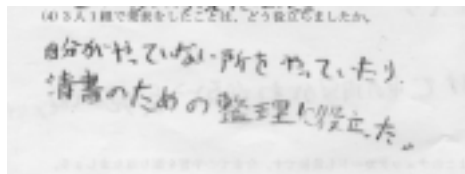 (4) 3人1組で発表をしたことは、どう役立ちましたか。
自分がやっていない所をやっていたり、
清書のための整理に役立った。